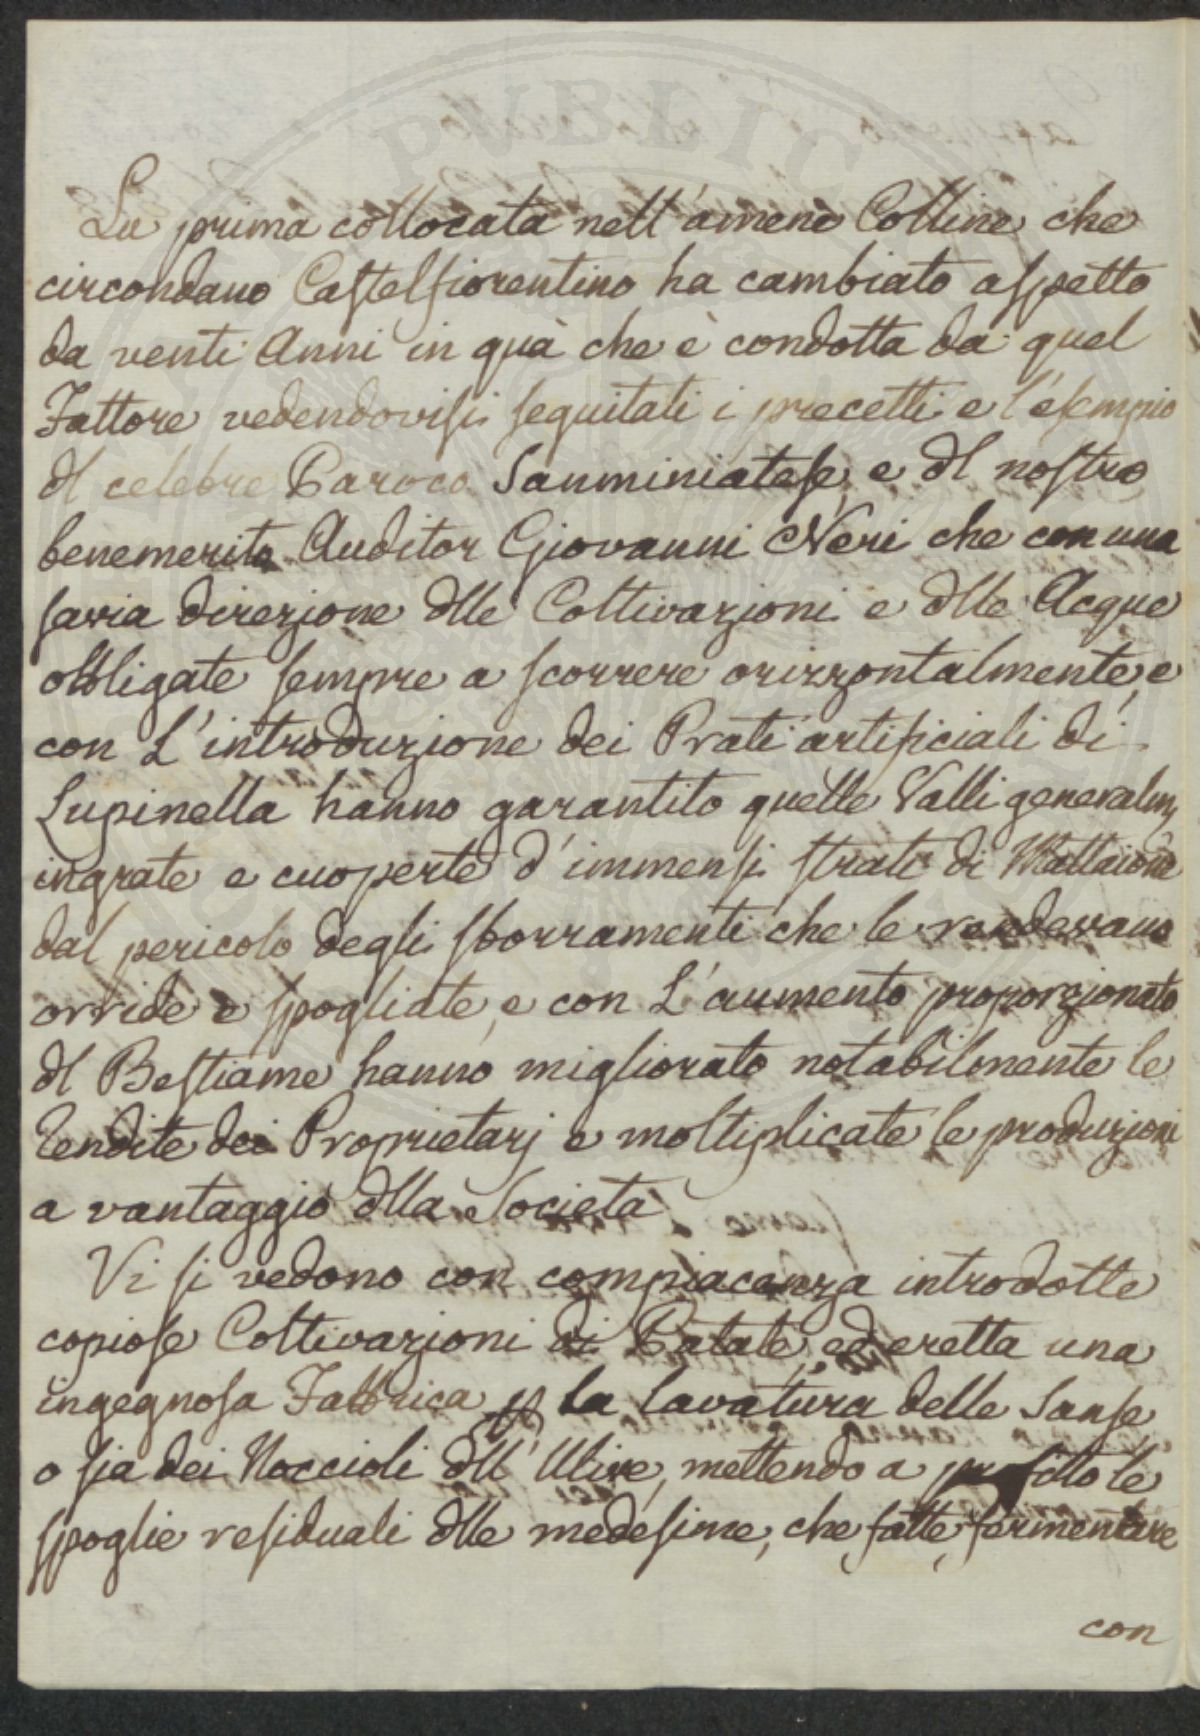 PVBLIC
La prima collocata nell'amene Colline che
circondano Castelfiorentino ha cambiato aspetto
da venti Anni in quà che è condotta da quel
Fattore vedendovisi seguitati i precetti e l'esempio
dl celebre Paroco Sanminiatese, e dl nostro
benemerito Auditor Giovanni Neri che con una
savia direzione dlle Coltivazioni e dlle Acque
obbligate sempre a scorrere orizzontalmente, e
con L'introduzione dei Prati artificiali di
Lupinella hanno garantito quelle Valli generalm
ingrate e cuoperte d'immensi strati di Mattaione
dal pericolo degli sborramenti che le rendevano
orride e spogliate, e con L'aumento proporzionato
dl Bestiame hanno migliorato notabilmente le
Rendite dei Proprietarj e moltiplicate le produzioni
a vantaggio dlla Società
Vi si vedono con compiacenza introdotte
copiose Coltivazioni di Patate, ed eretta una
ingegnosa Fabbrica p la lavatura delle Sanse,
o sia dei Noccioli dll'Ulive, mettendo a profitto le
spoglie residuali dlle medesime, che fatte fermentare
con